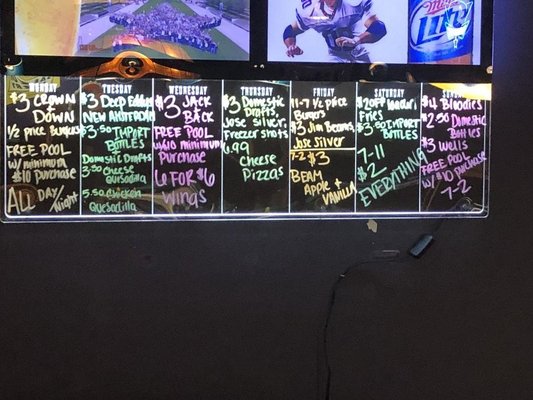 MONDAY
$3 CROWN
DOWN
1/2 PRICE BURGERS
FREE POOL
W/ MINIMUM
$10 PURCHASE
ALL DAY/
Night
TUESDAY
$3 DEEP EDDIES
$3.50 IMPORT
BOTTLES
Domestic Drafts
3.50 CHEESE
5.50 CHICKEN
WEDNESDAY
$3 JACK
BACK
FREE POOL
W/ $10 MINIMUM
PURCHASE
6 FOR $6
WINGS
THURSDAY
$3 Domestic
Drafts,
Jose Silver,
Freezer shots
6.99
Cheese
Pizzas
FRIDAY
11-7 1/2 Price
Burgers
$3 Jim Beams
Jose Silver
7-2 $3
BEAM
Apple &
VANILLA
SATURDAY
$2 OFF
Fries
$3.50 IMPORT
BOTTLES
7-11
$2
EVERYTHING
SUNDAY
$4 Bloodies
$2.50 Domestic
Bottles
$3 Wells
FREE POOL
W/ $10 PURCHASE
7-2
Miller
Lite